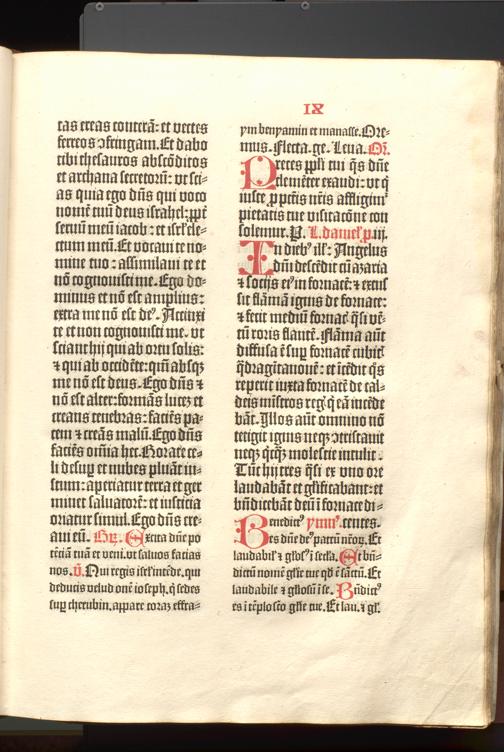 IX
tas ereas conterā: et vectes
ferreos ↄfringam. Et dabo
tibi thesauros abscōditos
et archana secretorū: vt sci-
as quia ego dn̄s qui voco
nomē tuū deus israhel: ꝓpt̄
seruū meū iacob: et isrl̄ ele-
ctum meū. Et vocaui te no-
mine tuo: assimilaui te et
nō cognouisti me. Ego do-
minus et nō est amplius:
extra me nō est deꝰ. Accinxi
te et non cognouisti me. vt
sciant hij qui ab ortu solis:
⁊ qui ab occidēte: qm̄ absqꝫ
me nō est deus. Ego dn̄s ⁊
nō est alter: formās lucez et
creans tenebras: faciēs pa-
cem ⁊ creās malū. Ego dn̄s
faciēs om̄ia hec. Rorate ce-
li desuꝑ et nubes pluāt iu-
stum: aperiatur terra et ger
minet saluatorē: et iusticia
oriatur simul. Ego dn̄s cre-
aui eū. Gr̄. Excita dn̄e po
tētiā tuā et veni. vt saluos facias
nos. v̄. Qui regis isrl̄ intēde. qui
deducis velud ouē ioseph. q̄ sedes
suꝑ cherubin. appare coraz effra-
ym benyamin et manasse. Ore-
mus. Flecta. ge. Leua. Or̄.
Preces ppl̄i tui q̄s dn̄e
clemēter exaudi: vt q̄
iuste ꝓ pctīs nr̄is affligimꝰ
pietatis tue visitacōne con
solemur. P. L. daniel'. ꝓ. iij.
In diebꝰ ill': Angelus
dn̄i descēdit cū azaria
⁊ socijs eiꝰ in fornacē: ⁊ excus
sit flāmā ignis de fornace:
⁊ fecit mediū fornacꝭ q̄si vē-
tū roris flantē. Flāma aūt
diffusa ē suꝑ fornacē cubitꝭ
q̄dragītanouē: et īcēdit q̄s
reperit iuxta fornacē de cal-
deis mīstros regꝭ q̄ eā incēde
bāt. Illos aūt omnino nō
tetigit ignis neqꝫ ↄtristauit
neqꝫ q̄cq̄ꝫ molestie intulit.
Tūc hij tres q̄si ex vno ore
laudabāt et gl̄ificabant: et
bn̄dicebāt deū ī fornace di-
Benedictꝰ ymnꝰ. centes.
es dn̄e deꝰ patrū nr̄oꝝ. Et
laudabil' ⁊ gl̄osꝰ ī secl̄a. Et bn̄-
dictū nomē gl̄ie tue qd̄ ē sāctū. Et
laudabile ⁊ gl̄osū ī se. Bn̄dictꝰ
es ī tēplo scō gl̄ie tue. Et lau. ⁊ gl'.